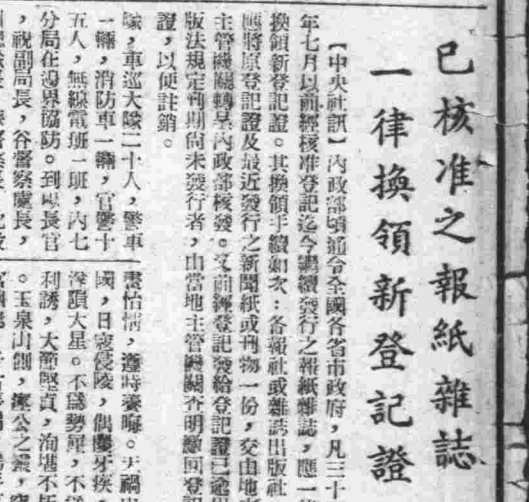 已核准之報紙雜誌
一律換領新登記證
【中央社訊】內政部頃通令全國各省市政府，凡三十
年七月以前經核准登記迄今繼續發行之報紙雜誌，應一律
換領新登記證。其換領手續如次：各報社或雜誌出版社
應將原登記證及最近發行之新聞紙或刊物一份，交由地方
主管機關轉呈內政部核發。又前經登記發給登記證已逾出
版法規定刊期尚未發行者，由當地主管機關查明繳回登記
證，以便註銷。
隊，車巡大隊二十人，警車
一輛，消防車一輛，官警十
五人，無線電班一班，內七
分局在邊界協防。到場長官
，祝副局長，谷督察處長，
盡怡情，遵時養晦。天禍
國，日寇侵陵，偶
大星。不為勢屈，不
利誘，大節堅貞，洵堪不
。玉泉山